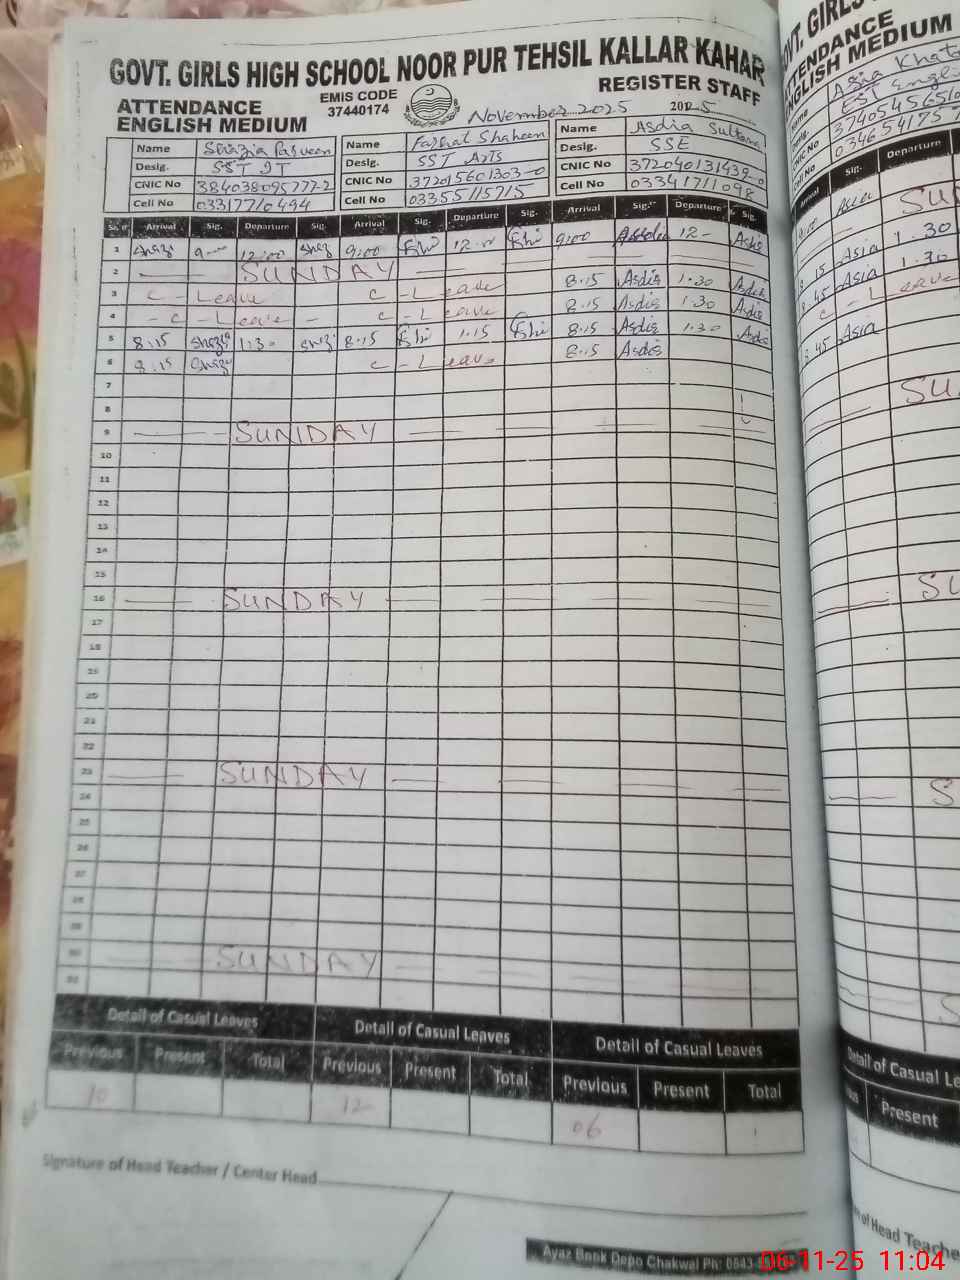 GOVT. GIRLS HIGH SCHOOL NOOR PUR TEHSIL KALLAR KAHAR
ATTENDANCE EMIS CODE REGISTER STAFF
ENGLISH MEDIUM 37440174 November 2025 2025
Name Shazia Parveen Name Farhat Shaheen Name Asdia Sultana
Desig. SST IT Desig. SST Arts Desig. SSE
CNIC No 384038095777-2 CNIC No 372015601303-0 CNIC No 372040131439-0
Cell No 03317710494 Cell No 03355115715 Cell No 03341711098
Sr. # Arrival Sig. Departure Sig. Arrival Sig. Departure Sig. Arrival Sig. Departure Sig.
1 Shazi 9-00 12:00 Shaz 9:00 12-00 9:00 Asdia 12- Asdia
2 SUNDAY
3 C - Leave C - Leave 8.15 Asdia 1.30 Asdia
4 - C - Leave - C - Leave 8.15 Asdia 1.30 Asdia
5 8:15 Shazia 1:30 Shazi 8.15 1.15 8.15 Asdia 1.30 Asdia
6 8.15 Shazia C - Leave 8.15 Asdia
7
8
9 SUNDAY
10
11
12
13
14
15
16 SUNDAY
17
18
19
20
21
22
23 SUNDAY
24
25
26
27
28
29
30 SUNDAY
31
Detail of Casual Leaves Detail of Casual Leaves Detail of Casual Leaves
Previous Present Total Previous Present Total Previous Present Total
10 12 06
Signature of Head Teacher / Center Head
Ayaz Book Depo Chakwal Ph: 0843
06-11-25 11:04
GOVT. GIRLS
ATTENDANCE
ENGLISH MEDIUM
Name Asia
Desig. EST
CNIC No
Cell No
Arrival Sig. Departure
Asia
SU
15 Asia 1.30
8.45 Asia 1.30
C - Leave
8.45 Asia
SU
SU
S
S
Detail of Casual Le
Present
of Head Teache